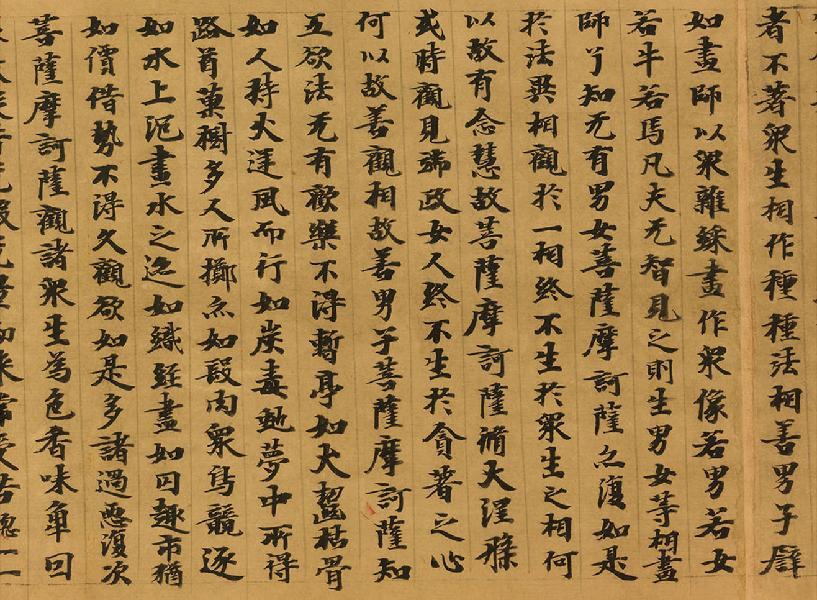 者不著衆生相作種種法相善男子譬
如畫師以衆雜綵畫作衆像若男若女
若牛若馬凡夫无智見之則生男女等相畫
師了知无有男女菩薩摩訶薩亦復如是
於法異相觀於一相終不生於衆生之相何
以故有念慧故菩薩摩訶薩脩大涅槃
或時覩見端政女人終不生於貪著之心
何以故善觀相故善男子菩薩摩訶薩知
五欲法无有歡樂不得暫亭如犬齧枯骨
如人持火逆風而行如炭毒虵夢中所得
路首菓樹多人所擲亦如段肉衆鳥競逐
如水上泡畫水之迹如織經盡如囚趣市猶
如價借勢不得久觀欲如是多諸過惡復次
菩薩摩訶薩觀諸衆生為色香味𧣴因